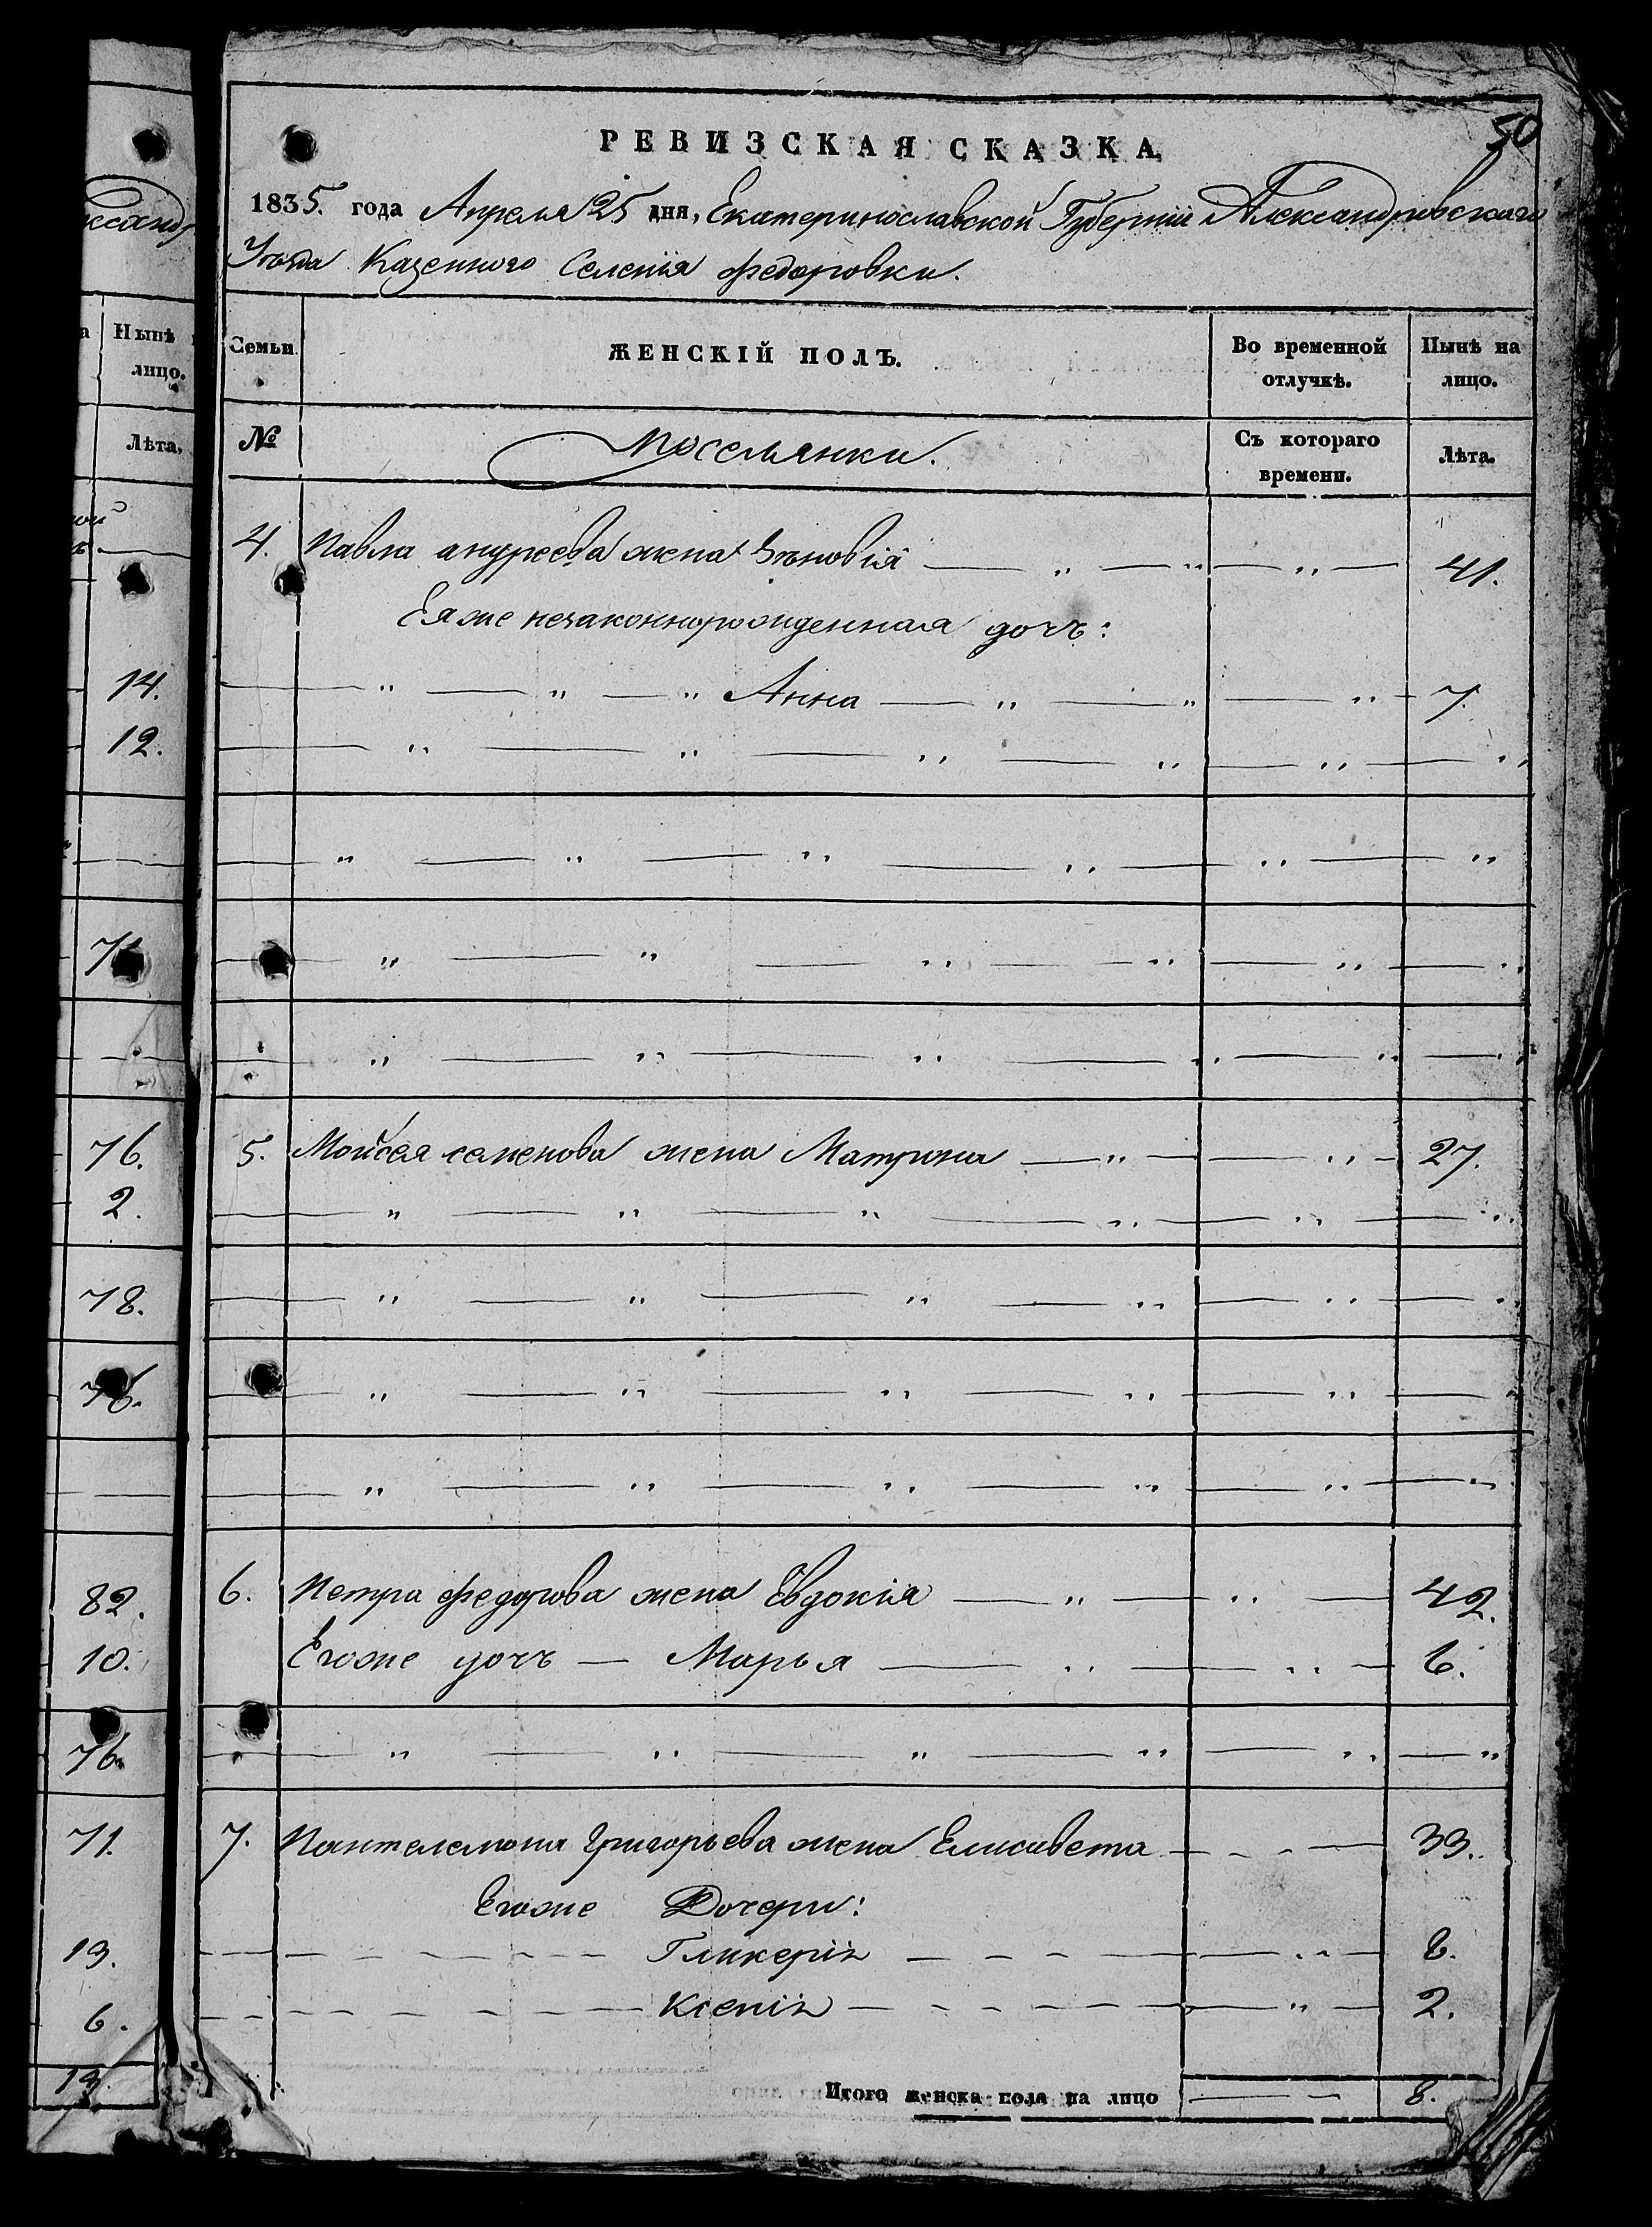 50
РЕВИЗСКАЯ СКАЗКА,
1835. года Апреля 25 дня, Екатеринославской Губерніи Александровскаго
Уѣзда Казенного Селенія Федоровки.
Нынѣ
лицо.
Лѣта.
14.
12.
76.
2.
78.
76.
82.
10.
76.
71.
13.
6.
13.
Семьи.
ЖЕНСКІЙ ПОЛЪ.
Во временной отлучкѣ.
Нынѣ на лицо.
№
Поселянки.
Съ котораго времени.
Лѣта.
4. Павла андреева жена Зѣновія 41.
Ея же незаконнорожденная дочь:
Анна 7.
5. Мойсея семенова жена Матрина 27.
6. Петра федорова жена Евдокія 42.
Егоже дочь — Марья 6.
7. Пантелемона Григорьева жена Елисавета 33.
Егоже Дочери:
Гликерія 8.
Ксенія 2.
Итого женска пола на лицо 8.